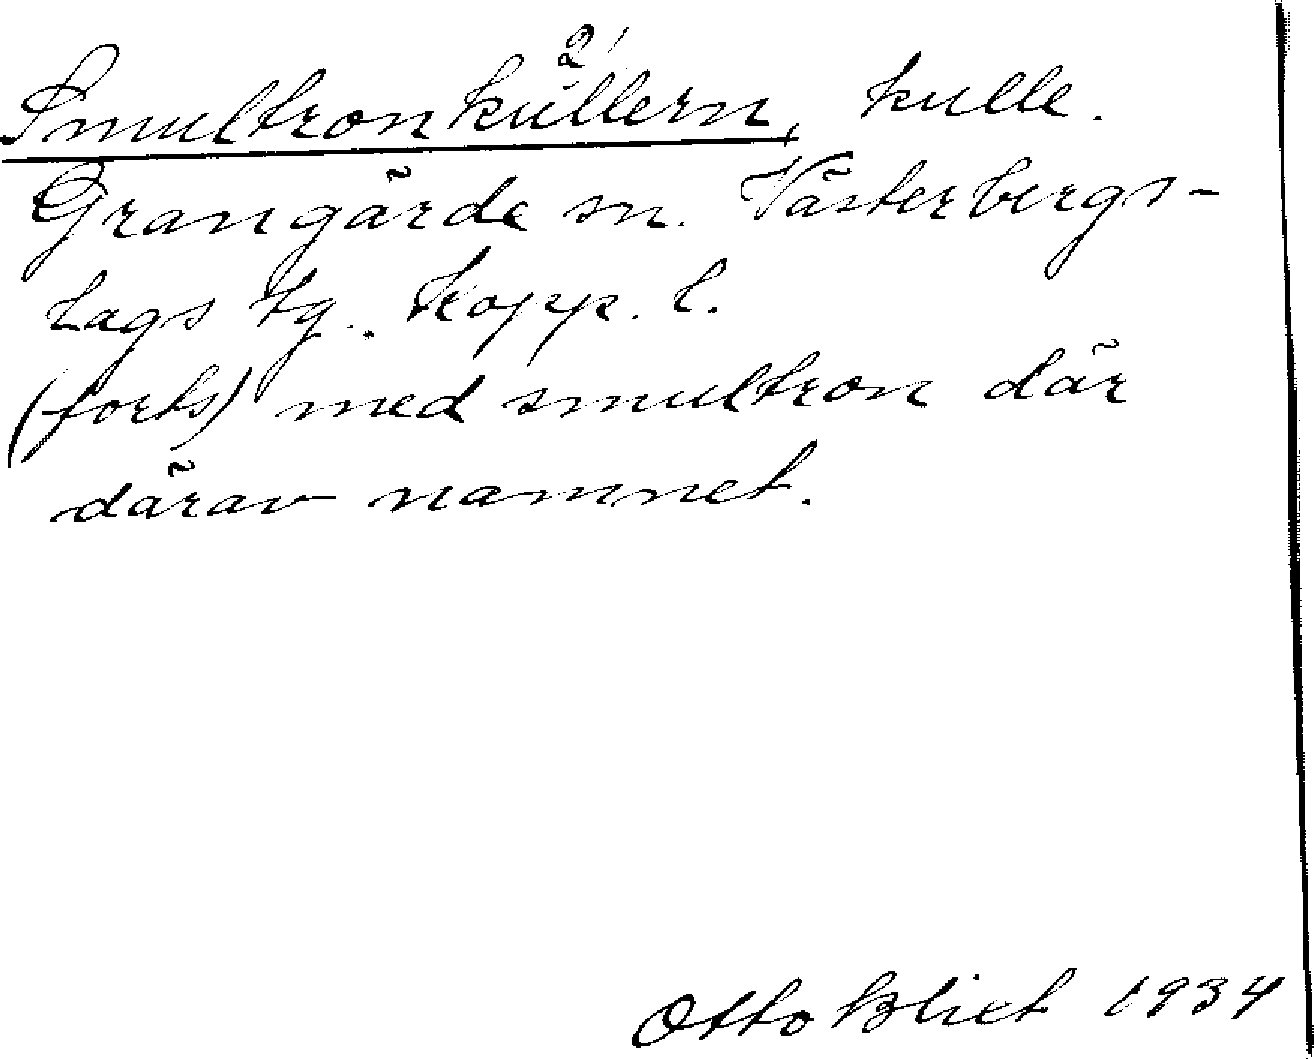 2/
Smultronkullern, kulle.
Grangärde sn. Västerbergs-
lags tg. Kopp. l.
(forts) med smultron där
därav namnet.
Otto Blixt 1934